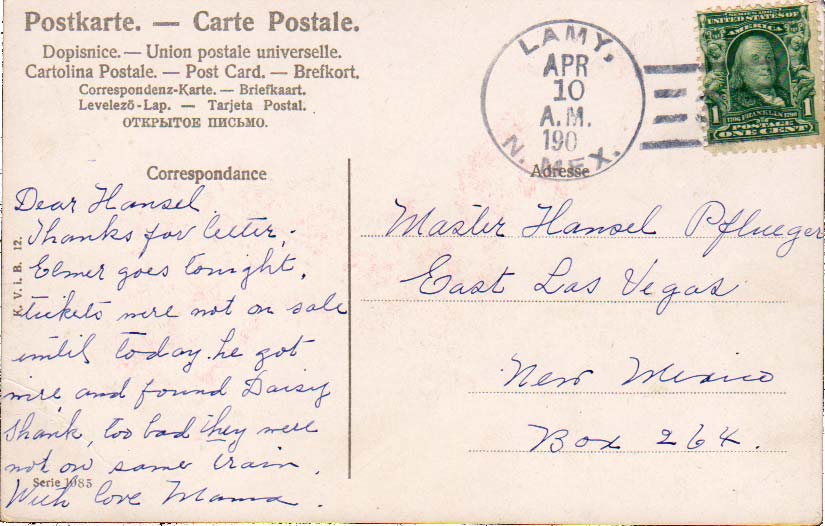 Postkarte. — Carte Postale.
Dopisnice. — Union postale universelle.
Cartolina Postale. — Post Card. — Brefkort.
Correspondenz-Karte. — Briefkaart.
Levelező-Lap. — Tarjeta Postal.
ОТКРЫТОЕ ПИСЬМО.
LAMY,
APR
10
A.M.
190
N. MEX.
SERIES 1902
UNITED STATES OF
AMERICA
1706 FRANKLIN 1790
1 POSTAGE 1
ONE CENT
Correspondance
Adresse
Dear Hansel.
Thanks for letter,
Elmer goes tonight,
tickets were not on sale
until today. he got
wire, and found Daisy
Shank, too bad they were
not on same train.
With love Mama.
K. V. i. B. 12.
Serie 1085
Master Hansel Pflueger
East Las Vegas
New Mexico
Box 264.